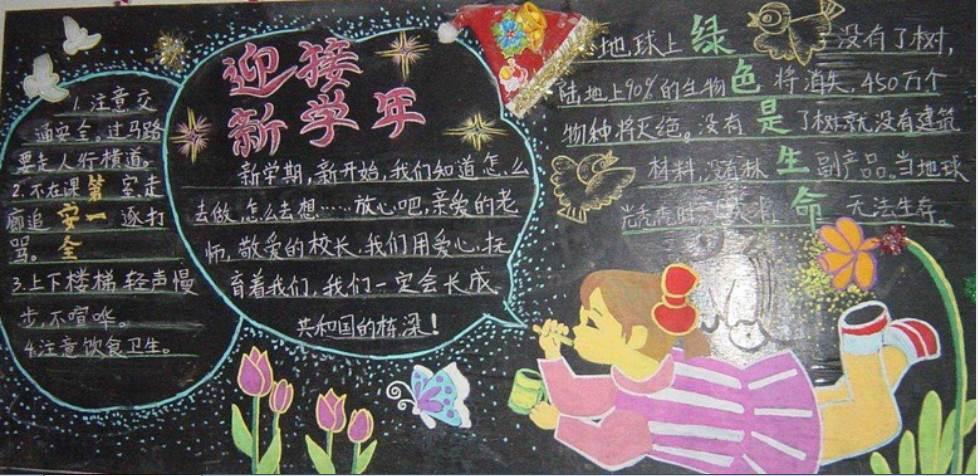 1.注意交
通安全,过马路
要走人行横道。
2.不在课室走
廊追逐打
骂。
安全
第一
3.上下楼梯,轻声慢
步,不喧哗。
4.注意饮食卫生。
迎接
新学年
新学期,新开始,我们知道怎么
去做,怎么去想……放心吧,亲爱的老
师,敬爱的校长,我们用爱心,抚
育着我们,我们一定会长成
共和国的栋梁!
绿色是生命
地球上没有了树,
陆地上90%的生物将消失,450万个
物种将灭绝。没有了树就没有建筑
材料,没有林副产品。当地球
光秃秃时无法生存。